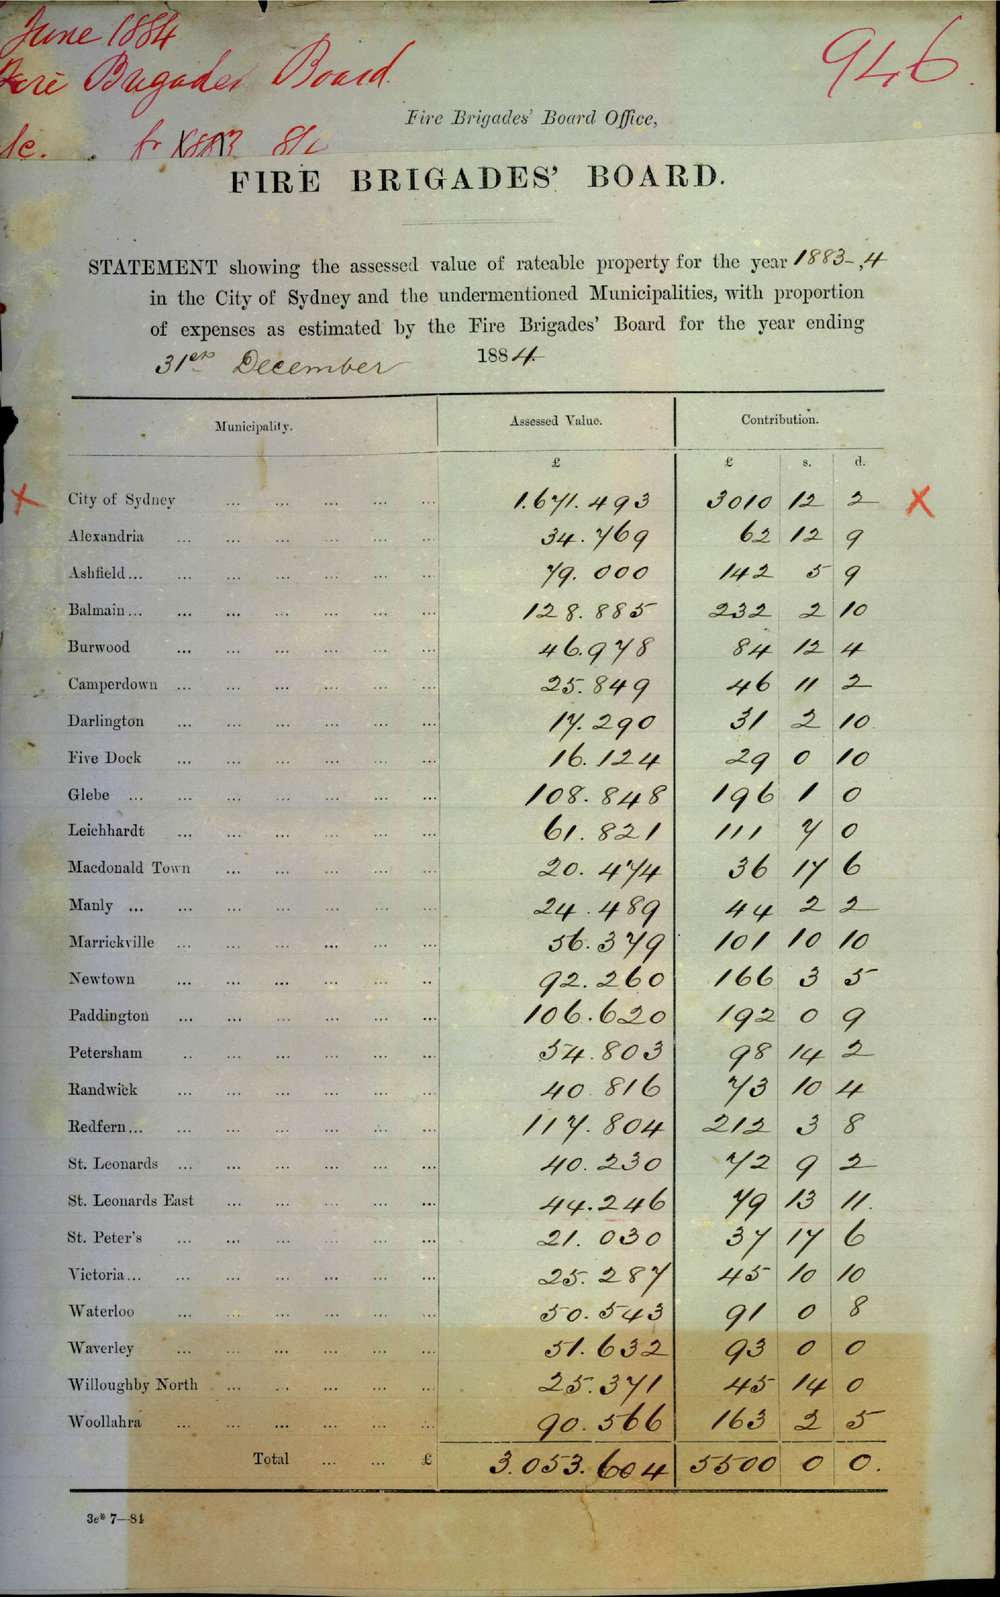 June 1884
Fire Brigades Board.
946.
Fire Brigades' Board Office,
&c. for 1883 &c
FIRE BRIGADES' BOARD.
STATEMENT showing the assessed value of rateable property for the year 1883-,4
in the City of Sydney and the undermentioned Municipalities, with proportion
of expenses as estimated by the Fire Brigades' Board for the year ending
31st December 1884.
Municipality. Assessed Value. Contribution.
£ £ s. d.
X City of Sydney ... ... ... ... ... 1.671.493 3010 12 2 X
Alexandria ... ... ... ... ... ... 34.769 62 12 9
Ashfield... ... ... ... ... ... ... 79.000 142 5 9
Balmain... ... ... ... ... ... ... 128.885 232 2 10
Burwood ... ... ... ... ... ... 46.978 84 12 4
Camperdown ... ... ... ... ... ... 25.849 46 11 2
Darlington ... ... ... ... ... ... 17.290 31 2 10
Five Dock ... ... ... ... ... ... 16.124 29 0 10
Glebe ... ... ... ... ... ... ... 108.848 196 1 0
Leichhardt ... ... ... ... ... ... 61.821 111 7 0
Macdonald Town ... ... ... ... ... 20.474 36 17 6
Manly ... ... ... ... ... ... ... 24.489 44 2 2
Marrickville ... ... ... ... ... ... 56.379 101 10 10
Newtown ... ... ... ... ... ... 92.260 166 3 5
Paddington ... ... ... ... ... ... 106.620 192 0 9
Petersham ... ... ... ... ... ... 54.803 98 14 2
Randwick ... ... ... ... ... ... 40.816 73 10 4
Redfern... ... ... ... ... ... ... 117.804 212 3 8
St. Leonards ... ... ... ... ... ... 40.230 72 9 2
St. Leonards East ... ... ... ... ... 44.246 79 13 11.
St. Peter's ... ... ... ... ... ... 21.030 37 17 6
Victoria... ... ... ... ... ... ... 25.287 45 10 10
Waterloo ... ... ... ... ... ... 50.543 91 0 8
Waverley ... ... ... ... ... ... 51.632 93 0 0
Willoughby North ... ... ... ... ... 25.371 45 14 0
Woollahra ... ... ... ... ... ... 90.566 163 2 5
Total ... ... £ 3.053.604 5500 0 0.
3e* 7—84